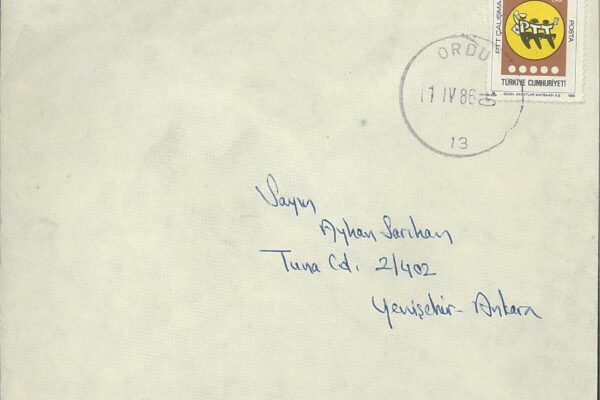 PTT ÇALIŞMA
PTT
POSTA
TÜRKİYE CUMHURİYETİ
ORDU
11 IV 86
13
Sayın
Ayhan Sarıhan
Tuna Cd. 2/402
Yenişehir - Ankara